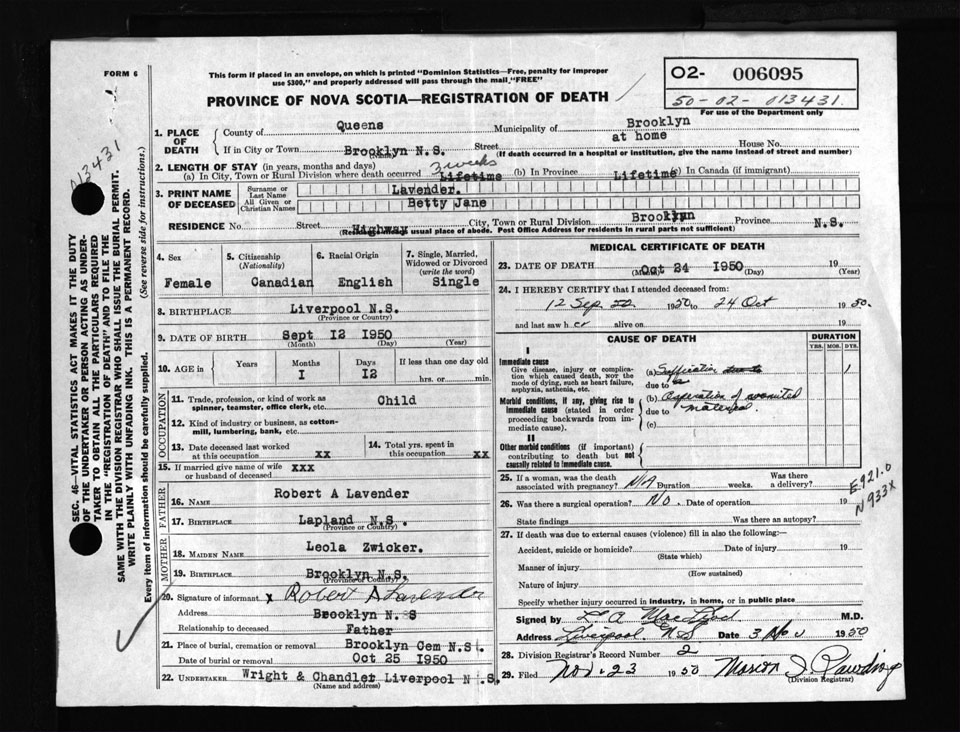 FORM 6
This form if placed in an envelope, on which is printed "Dominion Statistics—Free, penalty for improper
use $300," and properly addressed will pass through the mail "FREE"
PROVINCE OF NOVA SCOTIA—REGISTRATION OF DEATH
O2- 006095
50-02-013431.
For use of the Department only
013431
SEC. 46—VITAL STATISTICS ACT MAKES IT THE DUTY
OF THE UNDERTAKER OR PERSON ACTING AS UNDER-
TAKER TO OBTAIN ALL THE PARTICULARS REQUIRED
IN THE "REGISTRATION OF DEATH" AND TO FILE THE
SAME WITH THE DIVISION REGISTRAR WHO SHALL ISSUE THE BURIAL PERMIT.
WRITE PLAINLY WITH UNFADING INK. THIS IS A PERMANENT RECORD.
Every item of information should be carefully supplied. (See reverse side for instructions.)
1. PLACE OF DEATH
County of Queens Municipality of Brooklyn
If in City or Town Brooklyn N.S. Street at home House No.
(Name) (If death occurred in a hospital or institution, give the name instead of street and number)
2. LENGTH OF STAY (in years, months and days)
(a) In City, Town or Rural Division where death occurred 3 weeks Lifetime (b) In Province Lifetime (c) In Canada (if immigrant)
3. PRINT NAME OF DECEASED
Surname or Last Name Lavender.
All Given or Christian Names Betty Jane
RESIDENCE No. Street Highway City, Town or Rural Division Brooklyn Province N.S.
usual place of abode. Post Office Address for residents in rural parts not sufficient)
4. Sex Female
5. Citizenship (Nationality) Canadian
6. Racial Origin English
7. Single, Married, Widowed or Divorced (write the word) Single
8. BIRTHPLACE Liverpool N.S.
(Province or Country)
9. DATE OF BIRTH Sept 12 1950
(Month) (Day) (Year)
10. AGE in Years Months I Days I2 If less than one day old hrs. or min.
OCCUPATION
11. Trade, profession, or kind of work as spinner, teamster, office clerk, etc. Child
12. Kind of industry or business, as cotton-mill, lumbering, bank, etc.
13. Date deceased last worked at this occupation xx
14. Total yrs. spent in this occupation xx
15. If married give name of wife or husband of deceased xxx
FATHER
16. NAME Robert A Lavender
17. BIRTHPLACE Lapland N.S.
(Province or Country)
MOTHER
18. MAIDEN NAME Leola Zwicker.
19. BIRTHPLACE Brooklyn N.S.
(Province or Country)
20. Signature of informant x Robert A Lavender
Address Brooklyn N. S
Relationship to deceased Father
21. Place of burial, cremation or removal Brooklyn Cem N.S.
Date of burial or removal Oct 25 1950
22. UNDERTAKER Wright & Chandler Liverpool N.S.
(Name and address)
MEDICAL CERTIFICATE OF DEATH
23. DATE OF DEATH Oct 24 1950 19
(Month) (Day) (Year)
24. I HEREBY CERTIFY that I attended deceased from:
12 Sep 1950 to 24 Oct 1950.
and last saw her alive on 19
CAUSE OF DEATH DURATION
YRS. MOS. DYS.
I
Immediate cause
Give disease, injury or complication which caused death, NOT the mode of dying, such as heart failure, asphyxia, asthenia, etc.
(a) Suffocation 1
due to
Morbid conditions, if any, giving rise to immediate cause (stated in order proceeding backwards from immediate cause).
(b) Aspiration of vomited
due to material.
(c)
II
Other morbid conditions (if important) contributing to death but not causally related to immediate cause.
25. If a woman, was the death associated with pregnancy? N/A Duration weeks. Was there a delivery?
26. Was there a surgical operation? No. Date of operation 19
State findings Was there an autopsy?
E921.0
N933X
27. If death was due to external causes (violence) fill in also the following:—
Accident, suicide or homicide? Date of injury 19
(State which)
Manner of injury
(How sustained)
Nature of injury
Specify whether injury occurred in industry, in home, or in public place
Signed by MacLeod M.D.
Address Liverpool. N S Date 3 Nov 1950
28. Division Registrar's Record Number 2
29. Filed Nov. 23 1950 Marion
(Division Registrar)